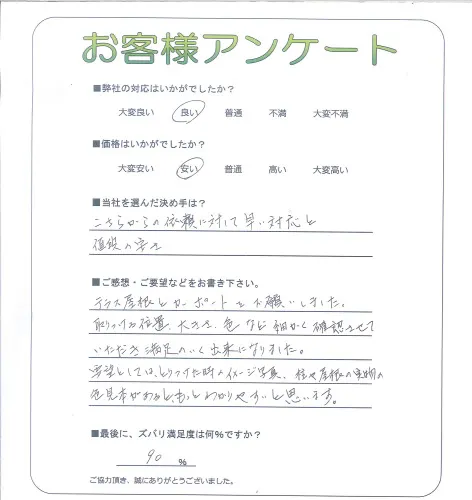 お客様アンケート
■弊社の対応はいかがでしたか？
大変良い 良い 普通 不満 大変不満
■価格はいかがでしたか？
大変安い 安い 普通 高い 大変高い
■当社を選んだ決め手は？
こちらからの依頼に対して早い対応と
値段の安さ
■ご感想・ご要望などをお書き下さい。
テラス屋根とカーポートをお願いしました。
取りつけ位置、大きさ、色など細かく確認させて
いただき満足のいく出来になりました。
要望としては、とりつけた時のイメージ写真、柱や屋根の実物の
色見本があると、もっとわかりやすいと思います。
■最後に、ズバリ満足度は何％ですか？
90 ％
ご協力頂き、誠にありがとうございました。